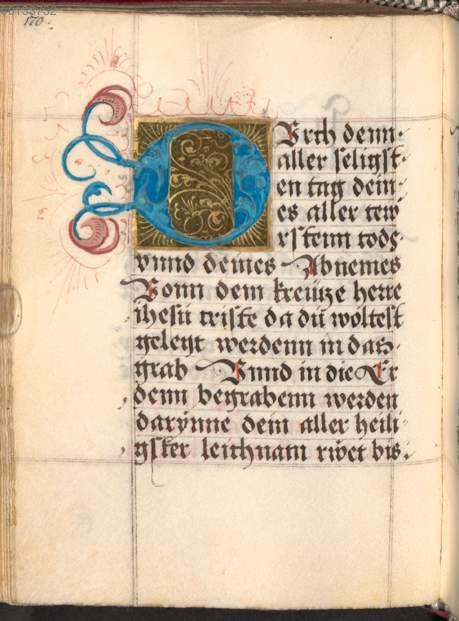 170
Durch denn
aller seligst
en tag dein
es aller tew
rstenn tods
vnnd deines Abnemes
Vonn dem kreütze herre
ihesü criste da dü woltest
gelegt werdenn in das
grab Vnnd in die Er
denn begrabenn werden
darÿnne dein aller heili
gster leichnam rwet bis